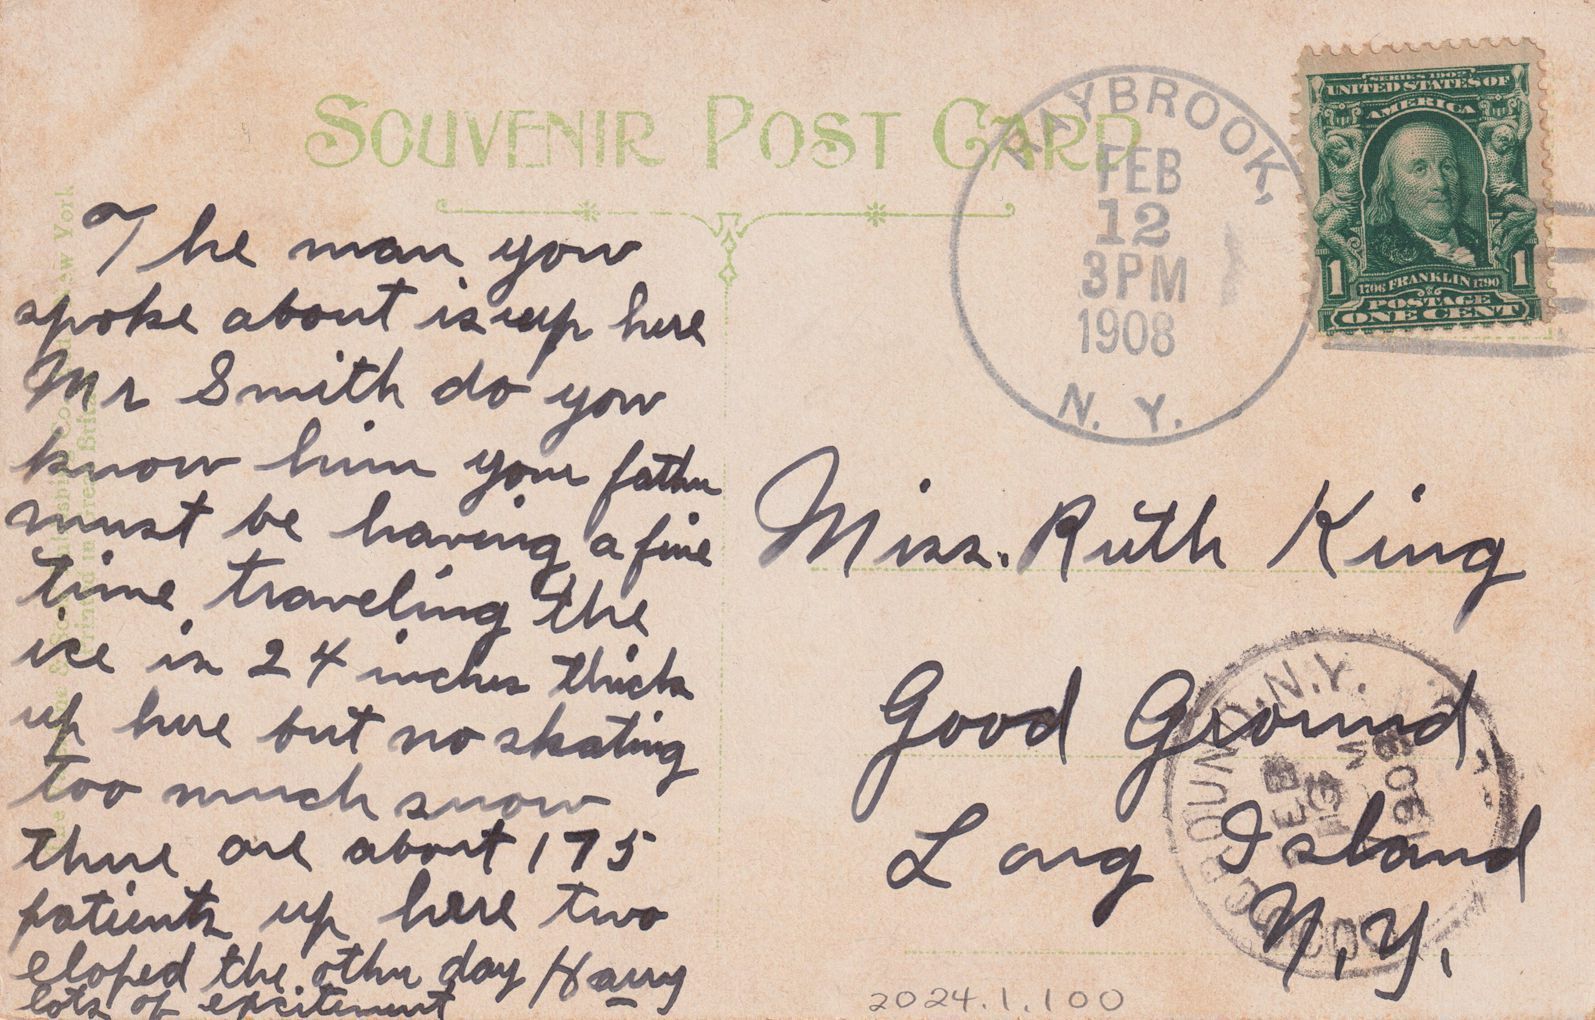 SOUVENIR POST CARD
RAYBROOK,
FEB
12
3PM
1908
N. Y.
SERIES 1902
UNITED STATES OF
AMERICA
1 1706 FRANKLIN 1790 1
POSTAGE
ONE CENT
The man you
spoke about is up here
Mr Smith do you
know him your father
must be having a fine
time traveling the
ice is 24 inches thick
up here but no skating
too much snow
there are about 175
patients up here two
eloped the other day Harry
lots of excitement
Miss. Ruth King
Good Ground
Long Island
N.Y.
GROUND, N.Y.
FEB
13
1908
2024.1.100